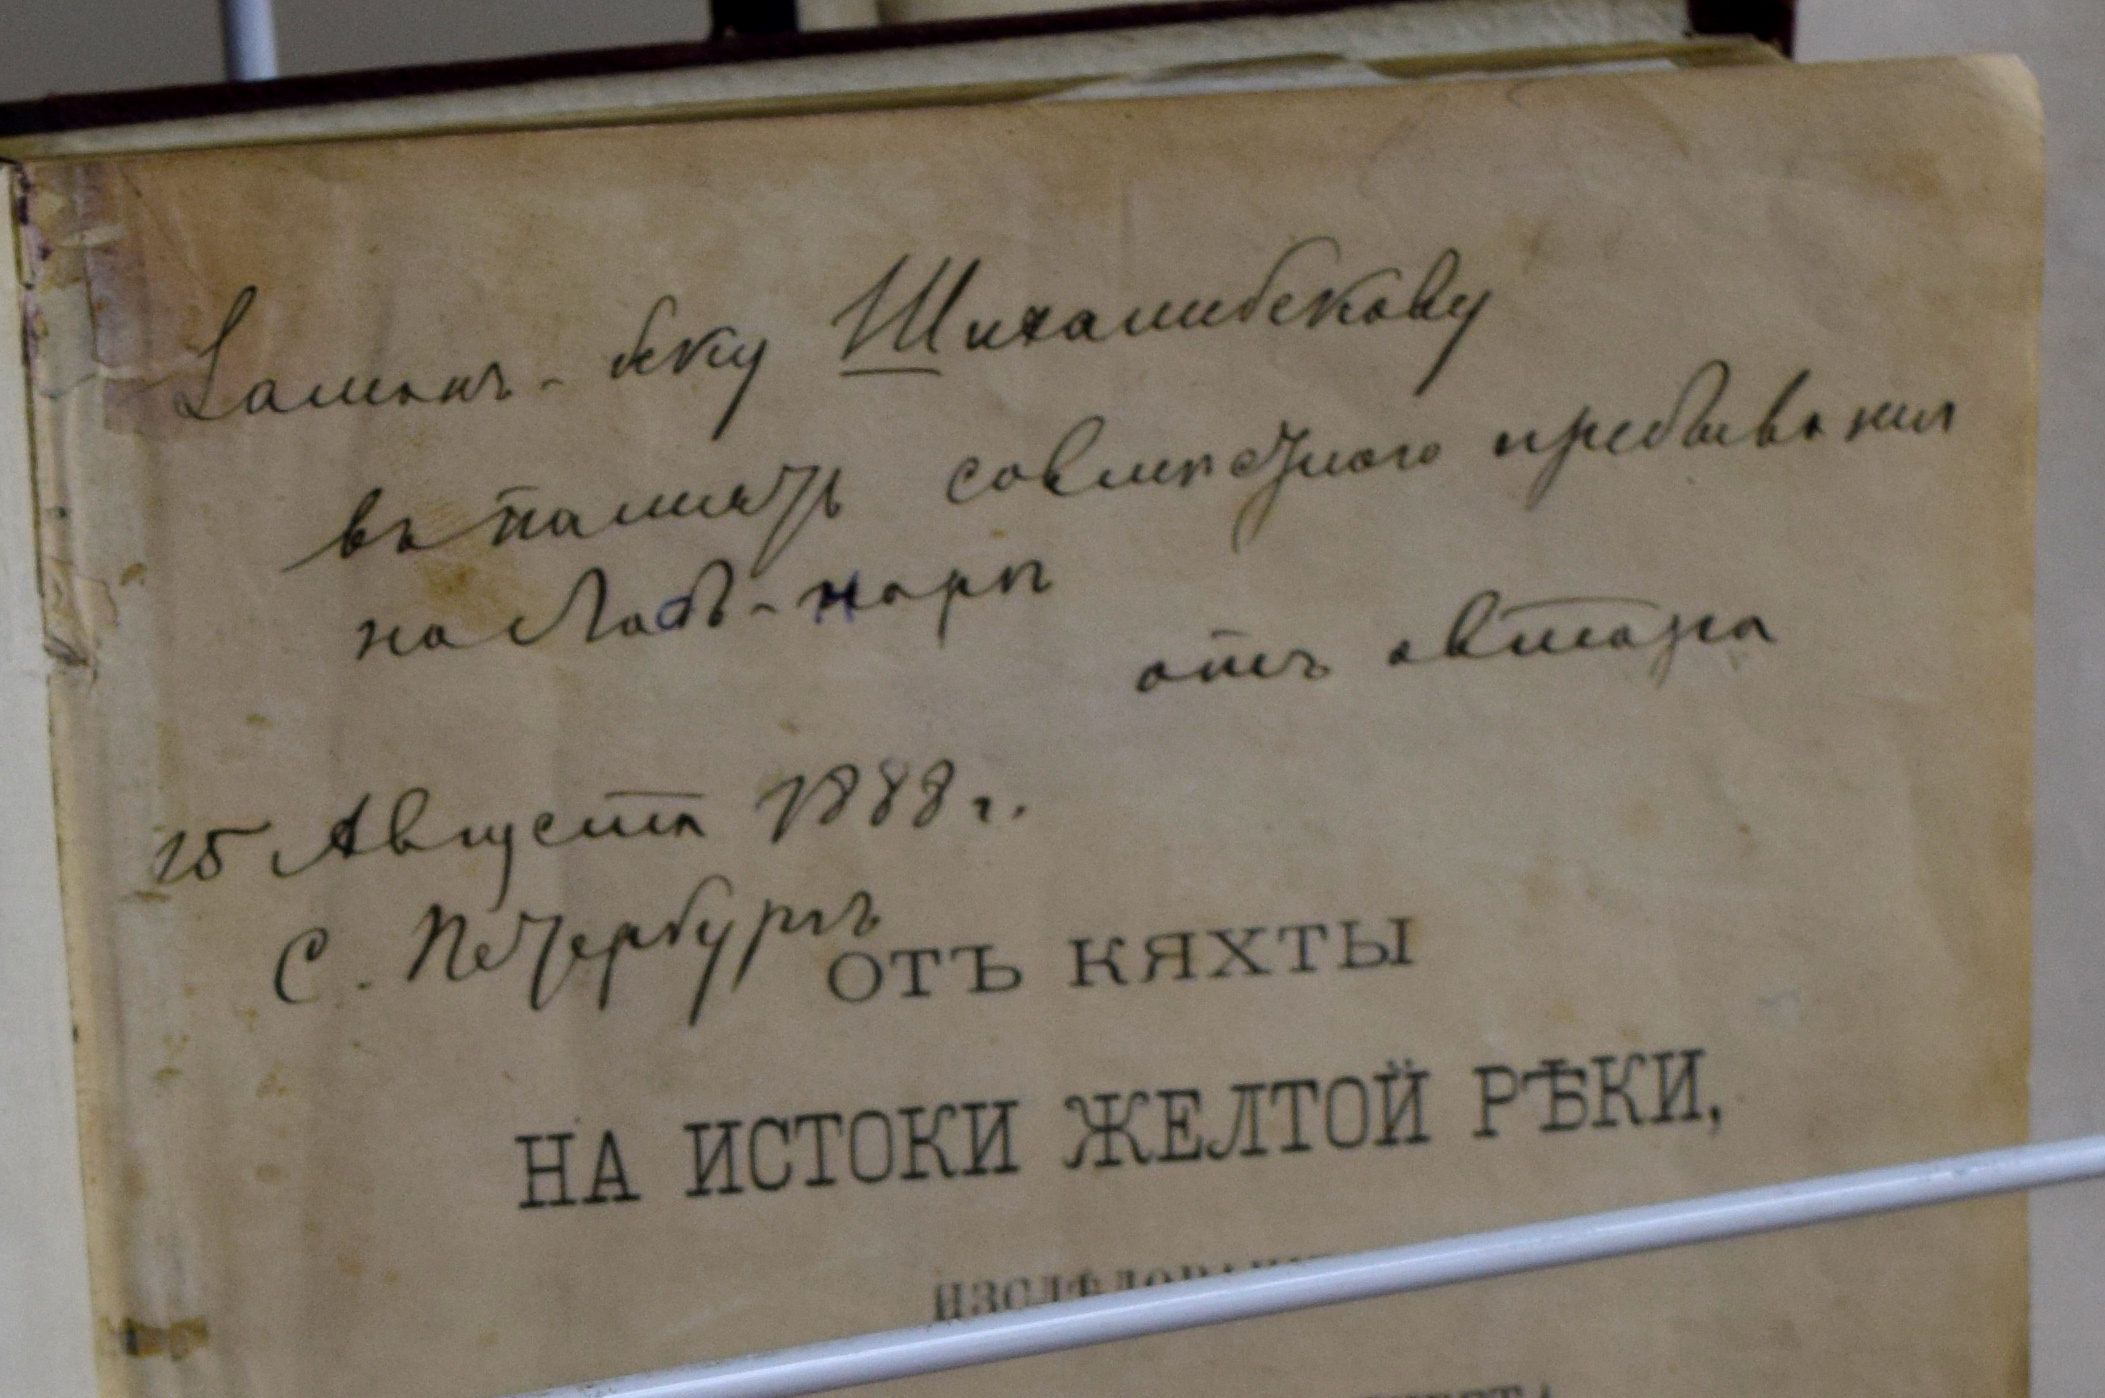 Заманъ-беку Шихалибекову
въ память совмѣстнаго пребыванія
на Лобъ-норѣ
отъ автора
15 Августа 1888 г.
С. Петербургъ
ОТЪ КЯХТЫ
НА ИСТОКИ ЖЕЛТОЙ РѢКИ,